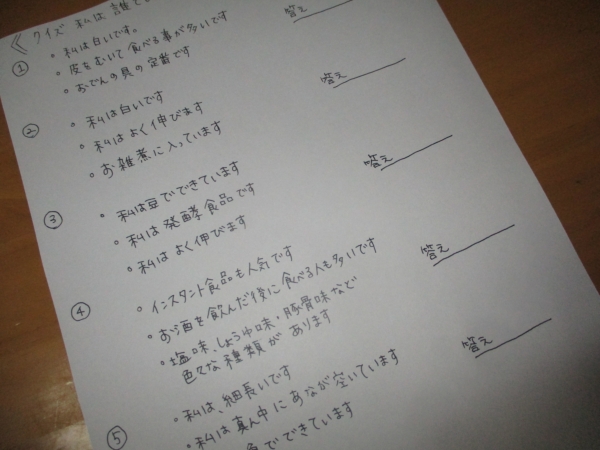 《 クイズ 私は 誰で
① ・私は白いです。
・皮をむいて食べる事が多いです
・おでんの具の定番です
答え
② ・私は白いです
・私はよく伸びます
・お雑煮に入っています
答え
③ ・私は豆でできています
・私は発酵食品です
・私はよく伸びます
答え
④ ・インスタント食品も人気です
・お酒を飲んだ後に食べる人も多いです
・塩味、しょうゆ味・豚骨味など
色々な種類があります
答え
⑤ ・私は、細長いです
・私は真ん中にあなが空いています
でできています
答え